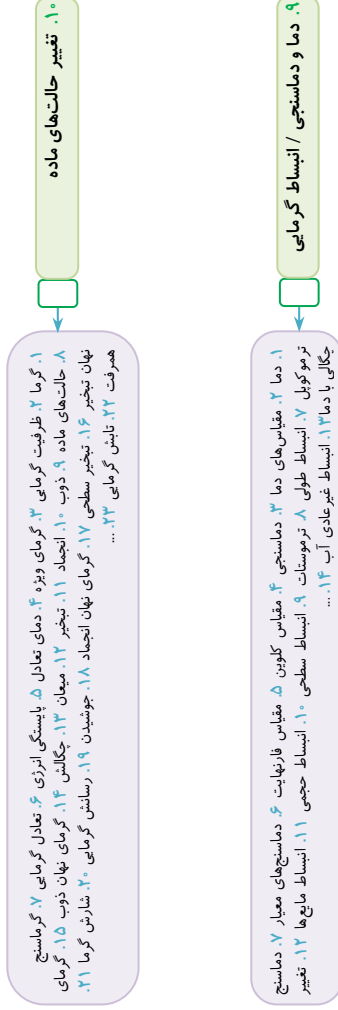 ۹. دما و دماسنجی / انبساط گرمایی
۱. دما ۲. مقیاس‌های دما ۳. دماسنجی ۴. مقیاس کلوین ۵. مقیاس فارنهایت ۶. دماسنج‌های معیار ۷. دماسنج
ترموکوپل ۷. انبساط طولی ۸. ترموستات ۹. انبساط سطحی ۱۰. انبساط حجمی ۱۱. انبساط مایع‌ها ۱۲. تغییر
چگالی با دما ۱۳. انبساط غیرعادی آب ۱۴. ...
۱۰. تغییر حالت‌های ماده
۱. گرما ۲. ظرفیت گرمایی ۳. گرمای ویژه ۴. دمای تعادل ۵. پایستگی انرژی ۶. تعادل گرمایی ۷. گرماسنج
۸. حالت‌های ماده ۹. ذوب ۱۰. انجماد ۱۱. تبخیر ۱۲. میعان ۱۳. چگالش ۱۴. گرمای نهان ذوب ۱۵. گرمای
نهان تبخیر ۱۶. تبخیر سطحی ۱۷. گرمای نهان انجماد ۱۸. جوشیدن ۱۹. رسانش گرمایی ۲۰. شارش گرما ۲۱.
همرفت ۲۲. تابش گرمایی ۲۳. ...